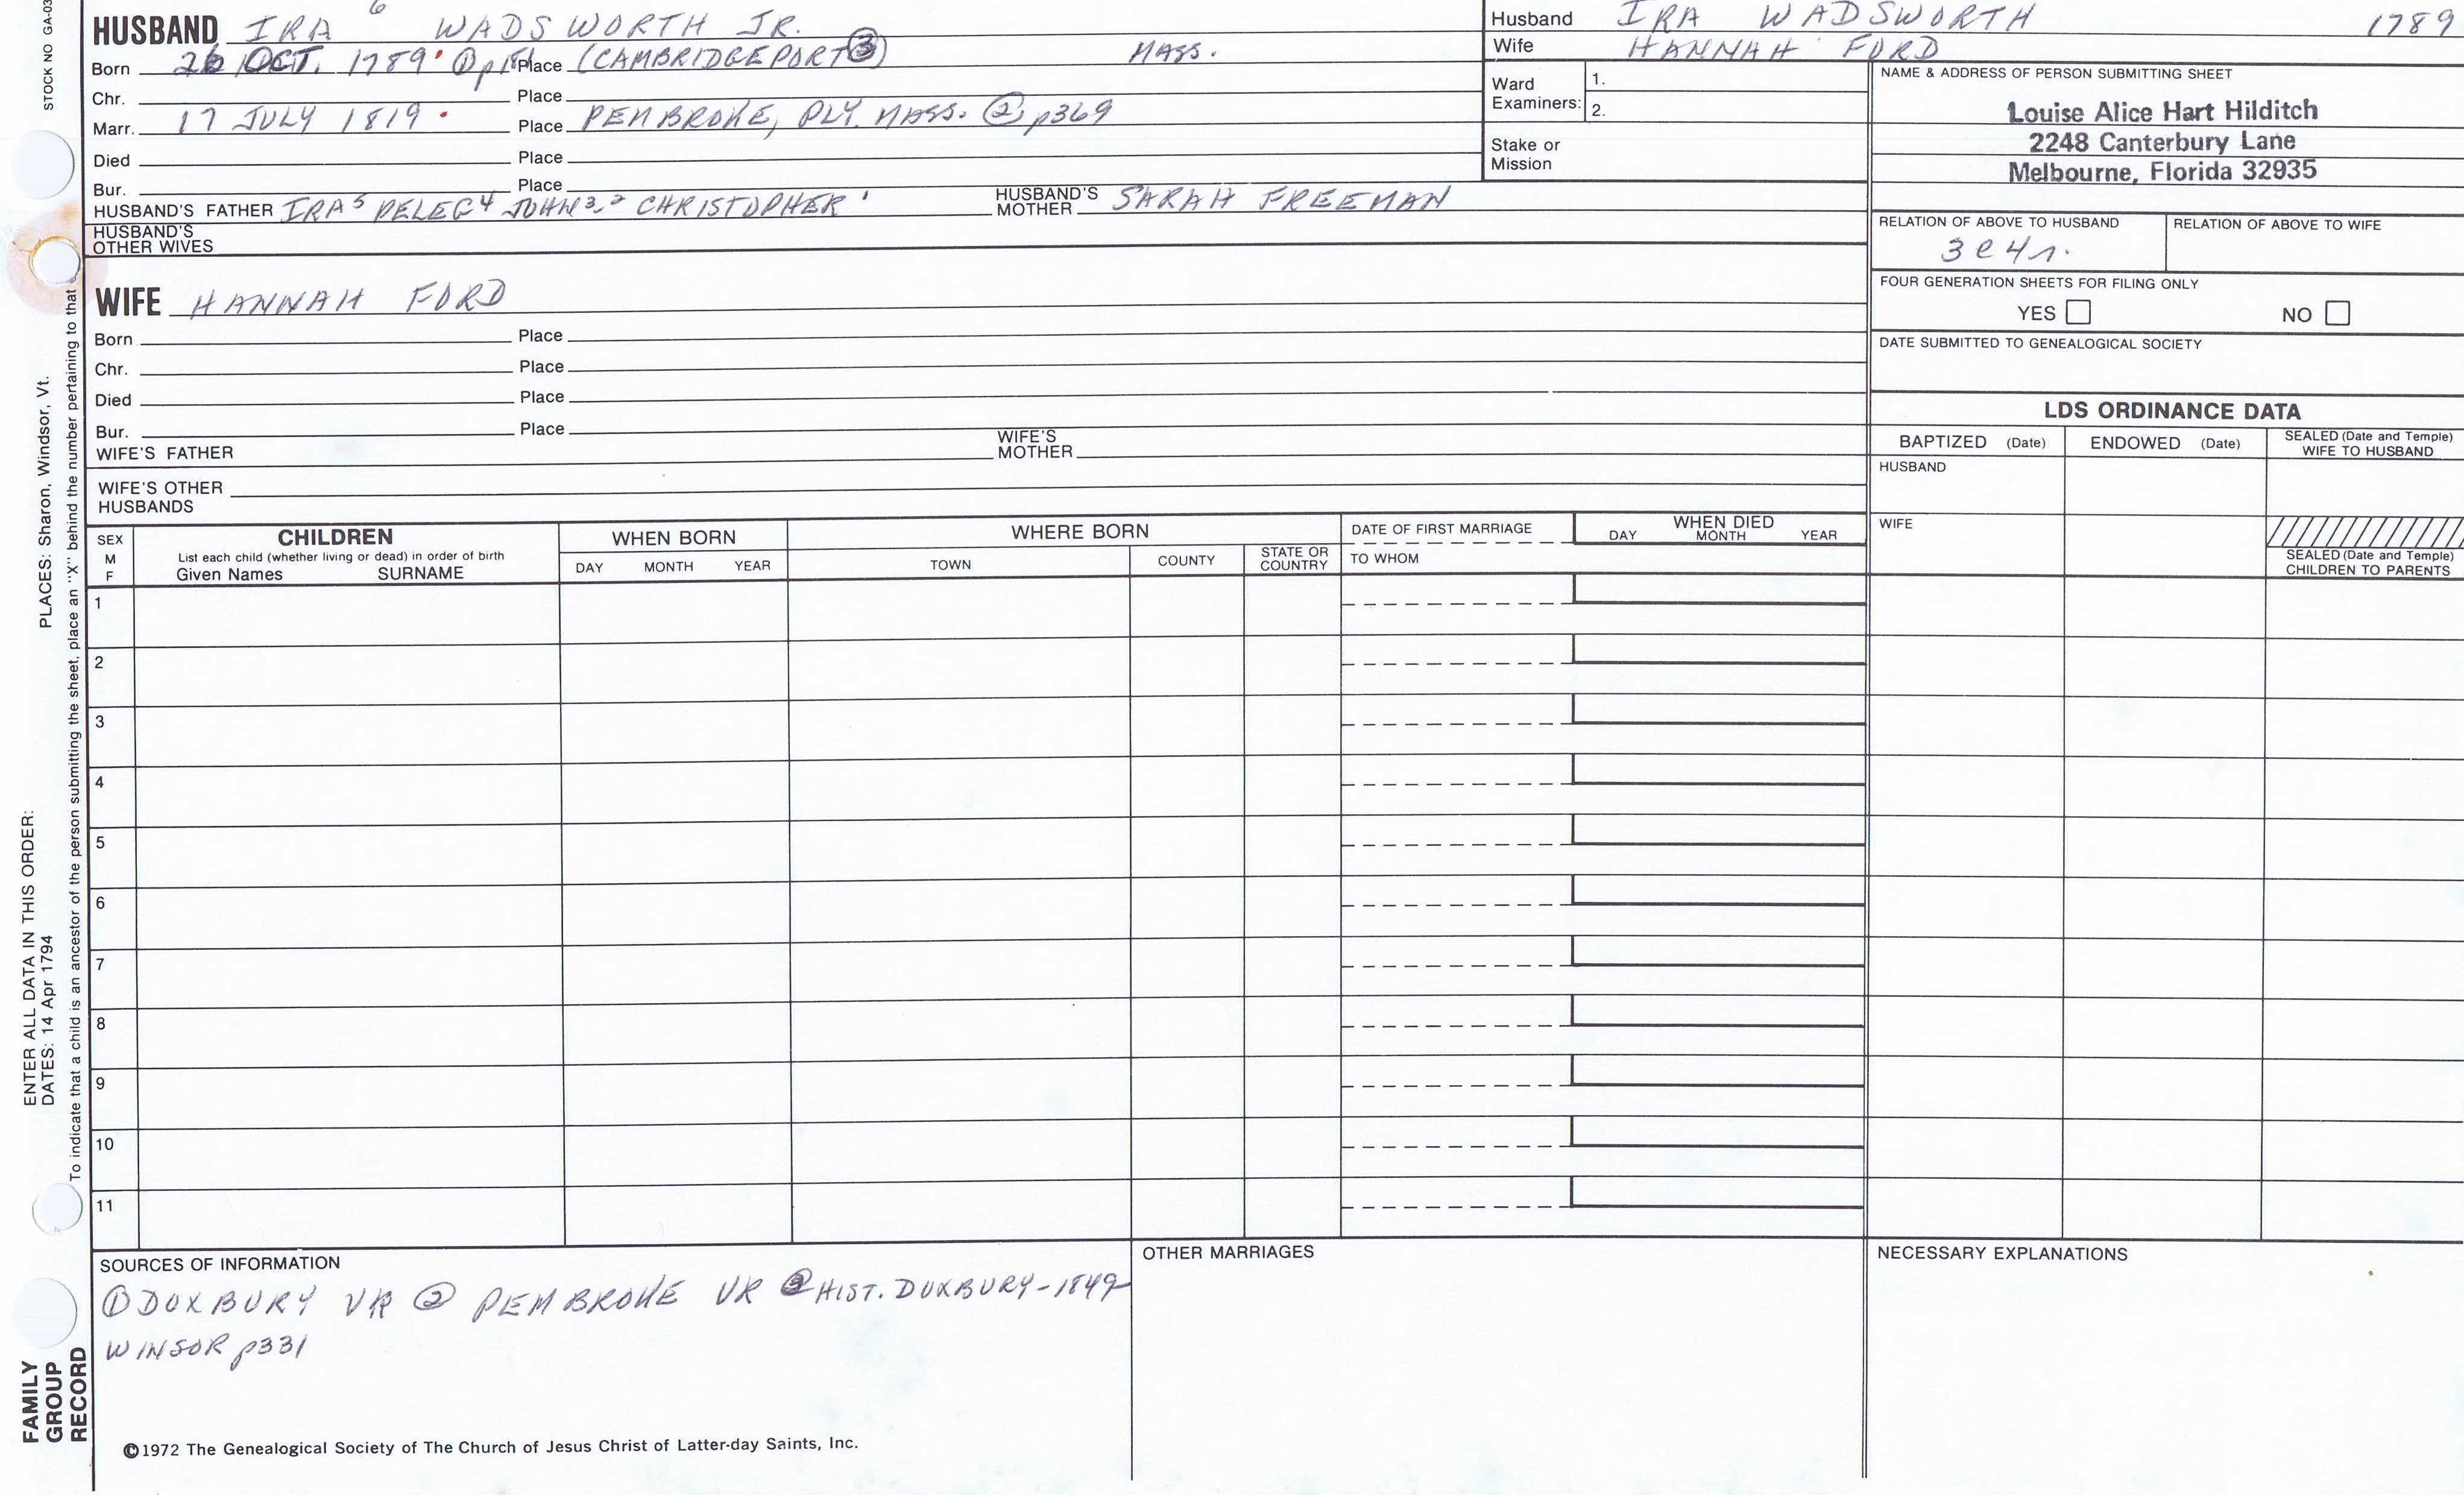 STOCK NO GA-03
HUSBAND IRA 6 WADSWORTH JR.
Born 26 OCT. 1789 ① Place (CAMBRIDGEPORT ③) MASS.
Chr. Place
Marr. 17 JULY 1819 Place PEMBROKE, PLY. MASS. ② p369
Died Place
Bur. Place
HUSBAND'S FATHER IRA 5 PELEG 4 JOHN 3, 2 CHRISTOPHER 1 HUSBAND'S MOTHER SARAH FREEMAN
HUSBAND'S
OTHER WIVES
WIFE HANNAH FORD
Born Place
Chr. Place
Died Place
Bur. Place
WIFE'S FATHER WIFE'S MOTHER
WIFE'S OTHER
HUSBANDS
Husband IRA WADSWORTH 1789
Wife HANNAH FORD
Ward Examiners: 1. 2.
Stake or
Mission
NAME & ADDRESS OF PERSON SUBMITTING SHEET
Louise Alice Hart Hilditch
2248 Canterbury Lane
Melbourne, Florida 32935
RELATION OF ABOVE TO HUSBAND RELATION OF ABOVE TO WIFE
3c4r.
FOUR GENERATION SHEETS FOR FILING ONLY
YES NO
DATE SUBMITTED TO GENEALOGICAL SOCIETY
LDS ORDINANCE DATA
BAPTIZED (Date) ENDOWED (Date) SEALED (Date and Temple) WIFE TO HUSBAND
HUSBAND
WIFE
SEALED (Date and Temple)
CHILDREN TO PARENTS
SEX M F
CHILDREN
List each child (whether living or dead) in order of birth
Given Names SURNAME
WHEN BORN
DAY MONTH YEAR
WHERE BORN
TOWN COUNTY STATE OR COUNTRY
DATE OF FIRST MARRIAGE
TO WHOM
WHEN DIED
DAY MONTH YEAR
1
2
3
4
5
6
7
8
9
10
11
SOURCES OF INFORMATION
① DUXBURY VR ② PEMBROKE VR ③ HIST. DUXBURY-1849
WINSOR p331
OTHER MARRIAGES
NECESSARY EXPLANATIONS
©1972 The Genealogical Society of The Church of Jesus Christ of Latter-day Saints, Inc.
ENTER ALL DATA IN THIS ORDER:
DATES: 14 Apr 1794 PLACES: Sharon, Windsor, Vt.
To indicate that a child is an ancestor of the person submitting the sheet, place an "X" behind the number pertaining to that
FAMILY
GROUP
RECORD